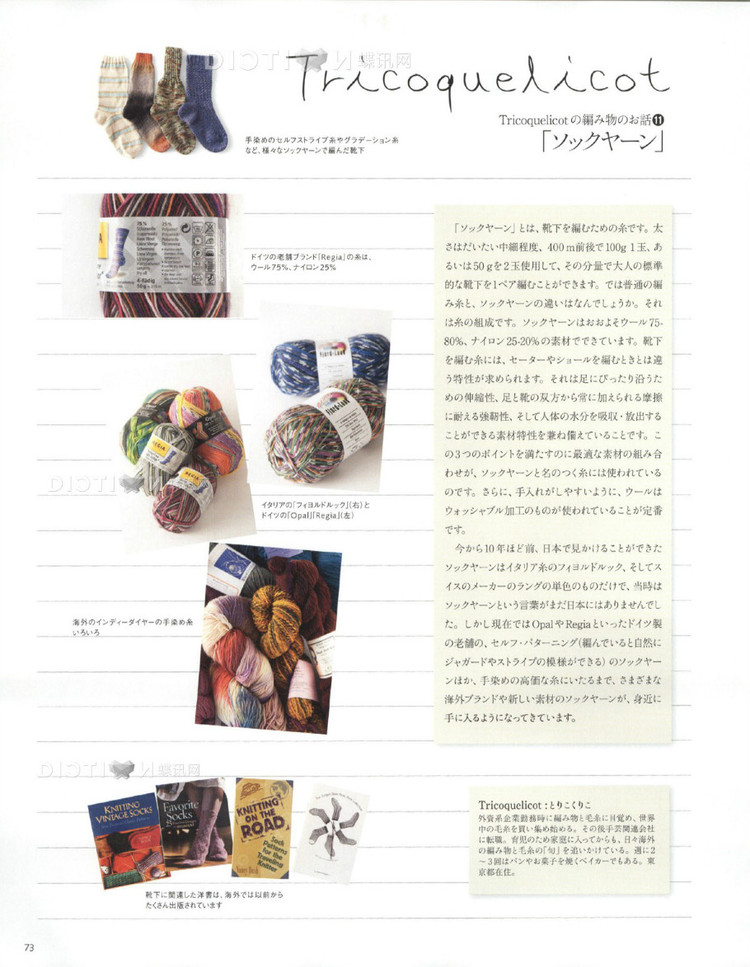 Tricoquelicot
Tricoquelicotの編み物のお話⓫
「ソックヤーン」
手染めのセルフストライプ糸やグラデーション糸
など、様々なソックヤーンで編んだ靴下
ドイツの老舗ブランド「Regia」の糸は、
ウール75%、ナイロン25%
イタリアの「フィヨルドルック」(右)と
ドイツの「Opal」「Regia」(左)
海外のインディーダイヤーの手染め糸
いろいろ
「ソックヤーン」とは、靴下を編むための糸です。太
さはだいたい中細程度、400m前後で100g 1玉、あ
るいは50gを2玉使用して、その分量で大人の標準
的な靴下を1ペア編むことができます。では普通の編
み糸と、ソックヤーンの違いはなんでしょうか。それ
は糸の組成です。ソックヤーンはおおよそウール75-
80%、ナイロン25-20%の素材でできています。靴下
を編む糸には、セーターやショールを編むときとは違
う特性が求められます。それは足にぴったり沿うた
めの伸縮性、足と靴の双方から常に加えられる摩擦
に耐える強靭性、そして人体の水分を吸収・放出する
ことができる素材特性を兼ね備えていることです。こ
の3つのポイントを満たすのに最適な素材の組み合
わせが、ソックヤーンと名のつく糸には使われている
のです。さらに、手入れがしやすいように、ウールは
ウォッシャブル加工のものが使われていることが定番
です。
今から10年ほど前、日本で見かけることができた
ソックヤーンはイタリア糸のフィヨルドルック、そしてス
イスのメーカーのラングの単色のものだけで、当時は
ソックヤーンという言葉がまだ日本にはありませんでし
た。しかし現在ではOpalやRegiaといったドイツ製
の老舗の、セルフ・パターニング(編んでいると自然に
ジャガードやストライプの模様ができる)のソックヤー
ンほか、手染めの高価な糸にいたるまで、さまざまな
海外ブランドや新しい素材のソックヤーンが、身近に
手に入るようになってきています。
KNITTING
VINTAGE SOCKS
Favorite
Socks
KNITTING
ON THE
ROAD
Sock
Patterns
for the
Traveling
Knitter
靴下に関連した洋書は、海外では以前から
たくさん出版されています
Tricoquelicot:とりこくりこ
外資系企業勤務時に編み物と毛糸に目覚め、世界
中の毛糸を買い集め始める。その後手芸関連会社
に転職。育児のため家庭に入ってからも、日々海外
の編み物と毛糸の「旬」を追いかけている。週に2
～3回はパンやお菓子を焼くベイカーでもある。東
京都在住。
73